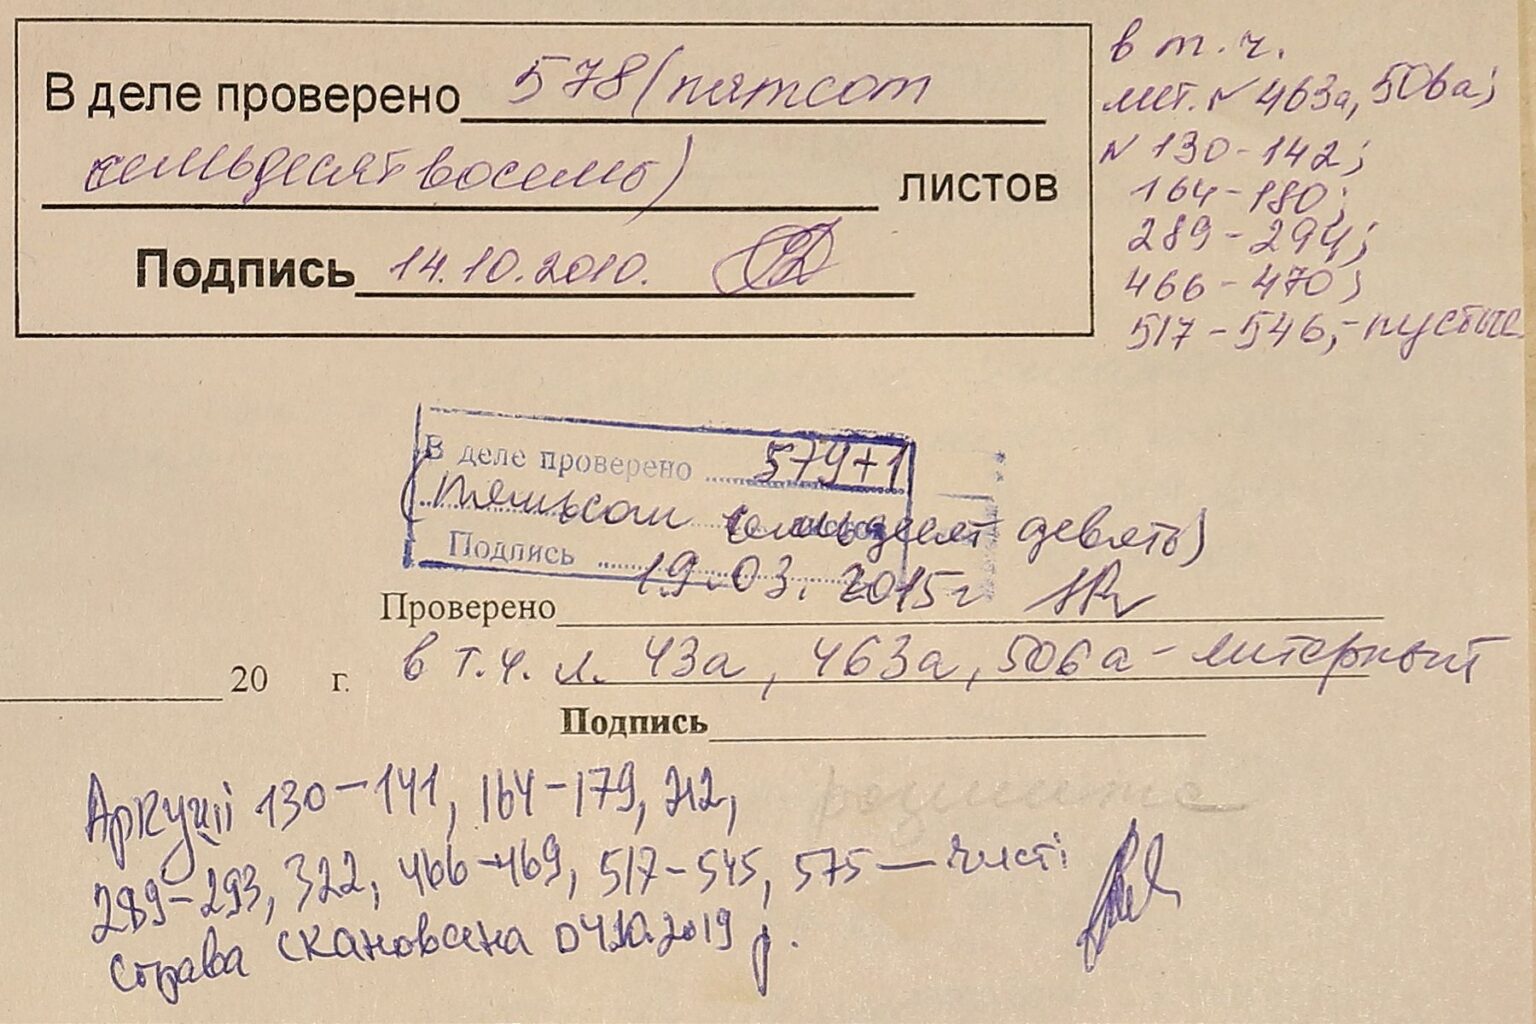 В деле проверено 578 (пятсот
семьдесят восемь) листов
Подпись 14.10.2010.
в т.ч.
лит. № 463а, 506а;
№ 130-142;
164-180;
289-294;
466-470;
517-546,- пустые
В деле проверено 579+1
(пятьсот семьдесят девять)
Подпись 19.03.2015г
Проверено
в т.ч. л. 43а, 463а, 506а - литерный
20 г.
Подпись
Аркуші 130-141, 164-179, 212,
289-293, 322, 466-469, 517-545, 575 - чисті
Справа сканована 04.10.2019 р.